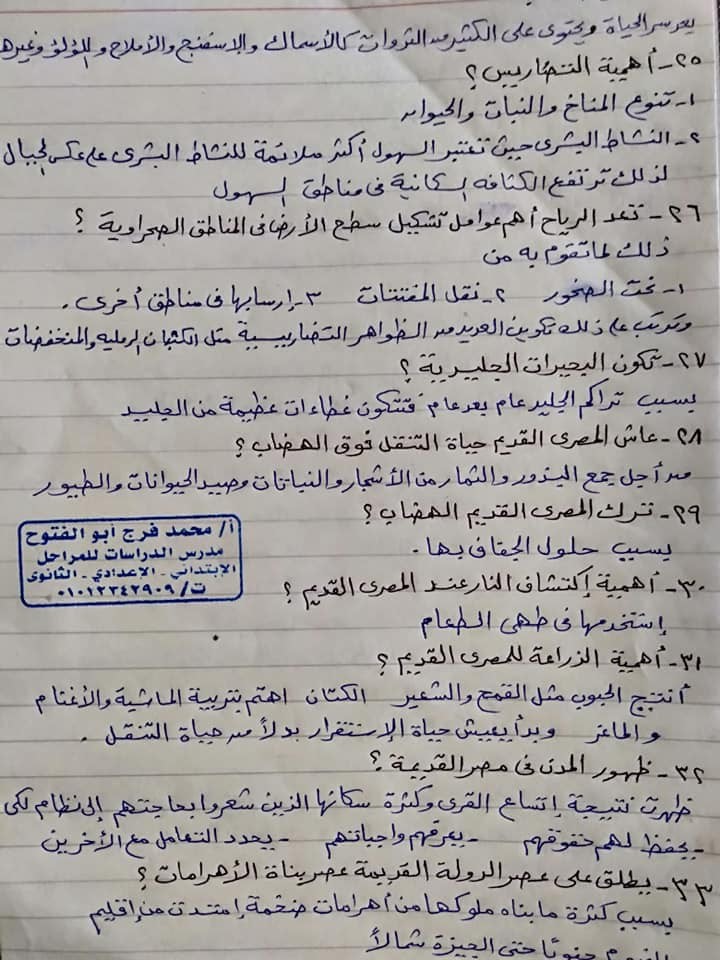 يعد سر الحياة ويحتوى على الكثير من الثروات كالأسماك والإسفنج والأملاح واللؤلؤ وغيرها
٢٥- أهمية التضاريس؟
١- تنوع المناخ والنبات والحيوان
٢- النشاط البشرى حيث تعتبر السهول أكثر ملائمة للنشاط البشرى على عكس الجبال
لذلك ترتفع الكثافه السكانية فى مناطق السهول
٢٦- تعد الرياح أهم عوامل تشكيل سطح الأرض فى المناطق الصحراوية؟
ذلك لما تقوم به من
١- نحت الصخور ٢- نقل المفتتات ٣- إرسابها فى مناطق أخرى.
وترتب على ذلك تكوين العديد من الظواهر التضاريسية مثل الكثبان الرمليه والمنخفضات
٢٧- تكون البحيرات الجليدية؟
بسبب تراكم الجليد عام بعد عام فتتكون غطاءات عظيمة من الجليد
٢٨- عاش المصرى القديم حياة التنقل فوق الهضاب؟
من أجل جمع البذور والثمار من الأشجار والنباتات وصيد الحيوانات والطيور
٢٩- ترك المصرى القديم الهضاب؟
بسبب حلول الجفاف بها.
أ/ محمد فرج أبو الفتوح
مدرس الدراسات للمراحل
الإبتدائي - الإعدادي - الثانوى
ت/ ٠١٠١٢٢٤٢٩٠٩
٣٠- أهمية إكتشاف النار عند المصرى القديم؟
إستخدمها فى طهى الطعام
٣١- أهمية الزراعة للمصرى القديم؟
أنتج الحبوب مثل القمح والشعير الكتان اهتم بتربية الماشية والأغنام
والماعز وبدأ يعيش حياة الإستقرار بدلاً من حياة التنقل.
٣٢- ظهور المدن فى مصر القديمة؟
ظهرت نتيجة إتساع القرى وكثرة سكانها الذين شعروا بحاجتهم إلى نظام لكى
- يحفظ لهم حقوقهم - يعرفهم واجباتهم - يحدد التعامل مع الأخرين
٣٣- يطلق على عصر الدولة القديمة عصر بناة الأهرامات؟
بسبب كثرة ما بناه ملوكها من أهرامات ضخمة إمتدت من إقليم
الفيوم جنوبًا حتى الجيزة شمالاً